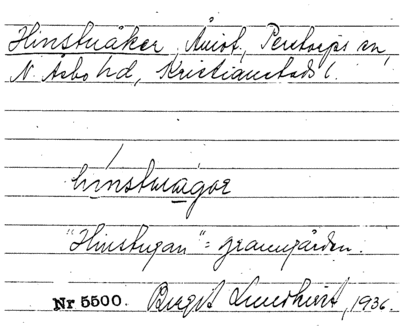 Hinstuåker, Åmot, Perstorps sn,
N. Åsbo hd, Kristianstads l.
hinsturagor
"Hinstugan" = granngården.
Nr 5500. Birgit Lundkvist, 1936.